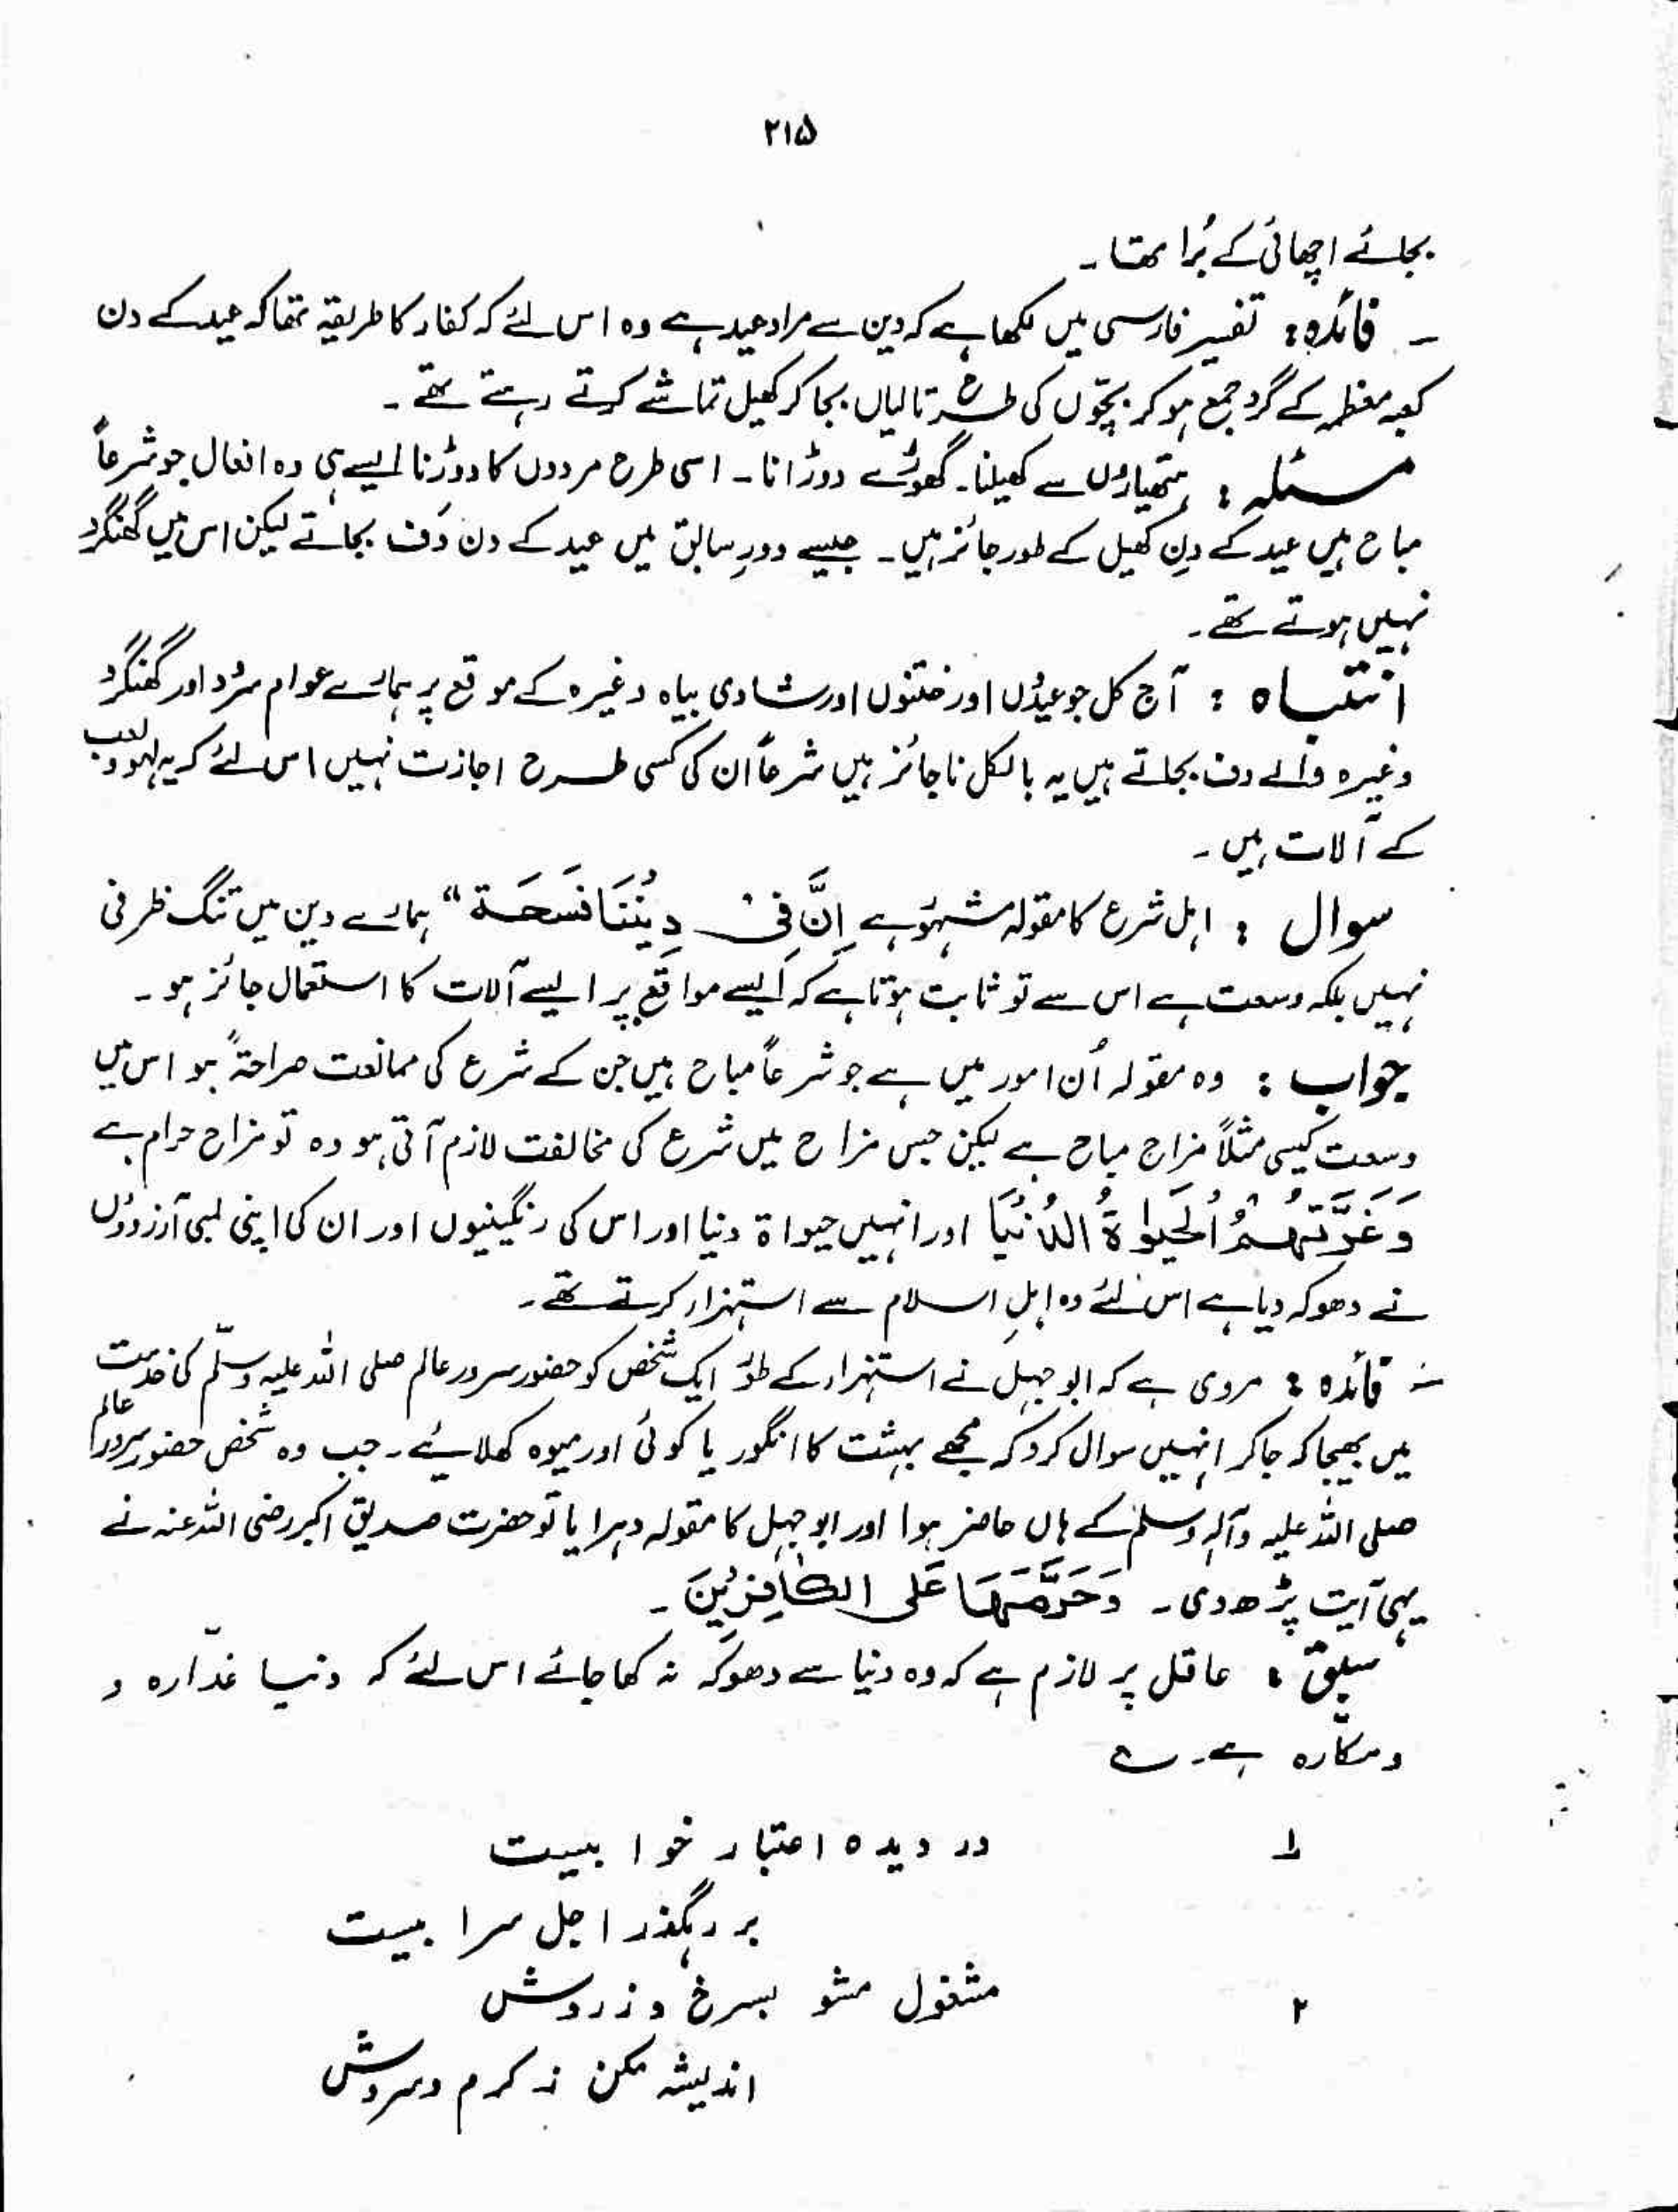 ۲۱۵
بجائے اچھائی کے بُرا تھا۔
۔ فائدہ : تفسیر فارسی میں لکھا ہے کہ دین سے مراد عید ہے وہ اس لئے کہ کفار کا طریقہ تھا کہ عید کے دن
کعبہ معظمہ کے گرد جمع ہو کر بچّوں کی طرح تالیاں بجا کر کھیل تماشے کرتے رہتے تھے۔
مسئلہ : ہتھیاروں سے کھیلنا۔ گھوڑے دوڑانا۔ اسی طرح مردوں کا دوڑنا ایسے ہی وہ افعال جو شرعاً
مباح ہیں عید کے دن کھیل کے طور جائز ہیں۔ جیسے دورِ سابق میں عید کے دن دَف بجاتے لیکن اس میں گھنگرو
نہیں ہوتے تھے۔
انتباہ : آج کل جو عیدوں اور ختنوں اور شادی بیاہ وغیرہ کے موقع پر ہمارے عوام سُرود اور گھنگرو
وغیرہ والے دف بجاتے ہیں یہ بالکل ناجائز ہیں شرعاً ان کی کسی طرح اجازت نہیں اس لئے کہ یہ لہو و لعب
کے آلات ہیں۔
سوال : اہل شرع کا مقولہ مشہور ہے اِنَّ فِیْ دِیْنِنَا فَسَحَۃ“ ہمارے دین میں تنگ ظرفی
نہیں بلکہ وسعت ہے اس سے تو ثابت ہوتا ہے کہ ایسے مواقع پر ایسے آلات کا استعمال جائز ہو۔
جواب : وہ مقولہ اُن امور میں ہے جو شرعاً مباح ہیں جن کے شرع کی ممانعت صراحۃً ہو اس میں
وسعت کیسی مثلاً مزاح مباح ہے لیکن جس مزاح میں شرع کی مخالفت لازم آتی ہو وہ تو مزاح حرام ہے
وَغَرَّتْهُمُ الْحَیٰوۃُ الدُّنْیَا اور انہیں حیواۃ دنیا اور اس کی رنگینیوں اور ان کی اپنی لمبی آرزووں
نے دھوکہ دیا ہے اس لئے وہ اہلِ اسلام سے استہزاء کرتے تھے۔
۔ فائدہ : مروی ہے کہ ابو جہل نے استہزاء کے طور ایک شخص کو حضور سرور عالم صلی اللہ علیہ وسلّم کی خدمت
میں بھیجا کہ جا کر انہیں سوال کرو کہ مجھے بہشت کا انگور یا کوئی اور میوہ کھلائیے۔ جب وہ شخص حضور سرور عالم
صلی اللہ علیہ وآلہٖ وسلم کے ہاں حاضر ہوا اور ابو جہل کا مقولہ دہرایا تو حضرت صدیق اکبر رضی اللہ عنہ نے
یہی آیت پڑھ دی۔ وَحَرَّمَهَا عَلَى الْكَافِرِيْنَ۔
سبق : عاقل پر لازم ہے کہ وہ دنیا سے دھوکہ نہ کھا جائے اس لئے کہ دنیا غدّارہ و
ومکّارہ ہے۔ ے
۱ در دیدہ اعتبار خوابیست
بر رہگذر اجل سرابیست
۲ مشغول مشو بسرخ و زردش
اندیشہ مکن ز گرم و سردش